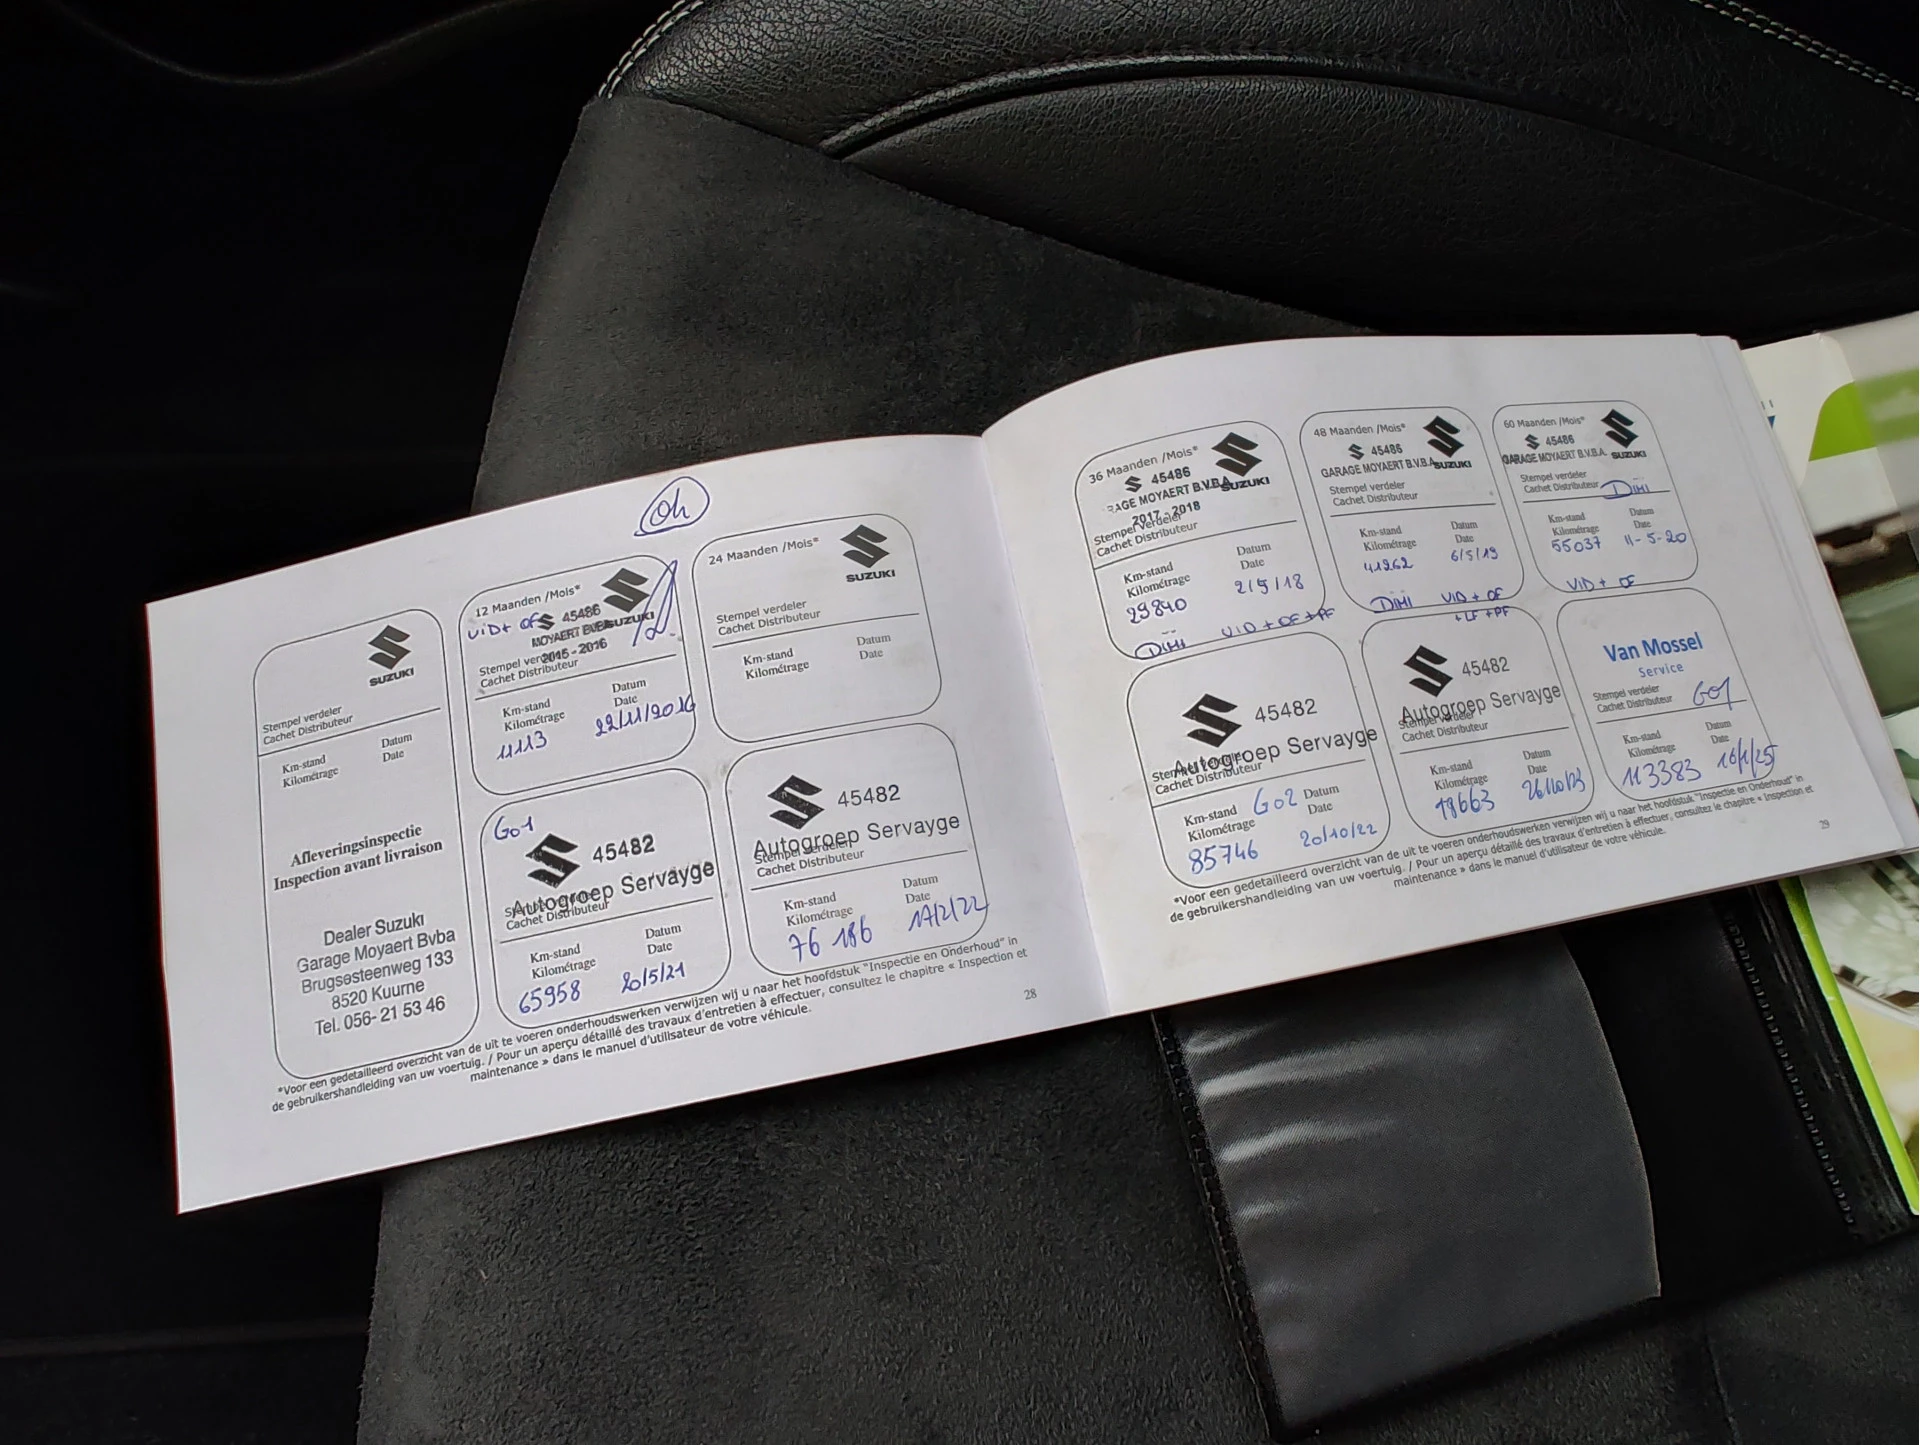 Oh
SUZUKI
Stempel verdeler
Cachet Distributeur
Km-stand
Kilométrage
Datum
Date
Afleveringsinspectie
Inspection avant livraison
Dealer Suzuki
Garage Moyaert Bvba
Brugsesteenweg 133
8520 Kuurne
Tel. 056- 21 53 46
12 Maanden /Mois*
ViD + OF
45486
MOYAERT BVBA
SUZUKI
2015 - 2016
Stempel verdeler
Cachet Distributeur
Km-stand
Kilométrage
Datum
Date
11113
22/11/2016
24 Maanden /Mois*
SUZUKI
Stempel verdeler
Cachet Distributeur
Km-stand
Kilométrage
Datum
Date
G01
45482
Autogroep Servayge
Cachet Distributeur
Km-stand
Kilométrage
Datum
Date
65958
20/5/21
45482
Autogroep Servayge
Stempel verdeler
Cachet Distributeur
Km-stand
Kilométrage
Datum
Date
76 186
17/2/22
*Voor een gedetailleerd overzicht van de uit te voeren onderhoudswerken verwijzen wij u naar het hoofdstuk "Inspectie en Onderhoud" in
de gebruikershandleiding van uw voertuig. / Pour un aperçu détaillé des travaux d'entretien à effectuer, consultez le chapitre « Inspection et
maintenance » dans le manuel d'utilisateur de votre véhicule.
28
36 Maanden /Mois*
45486
RAGE MOYAERT B.V.B.A.
SUZUKI
2017 - 2018
Stempel verdeler
Cachet Distributeur
Km-stand
Kilométrage
Datum
Date
29840
2/5/18
DiMi
ViD + OF + PF
48 Maanden /Mois*
45486
GARAGE MOYAERT B.V.B.A.
SUZUKI
Stempel verdeler
Cachet Distributeur
Km-stand
Kilométrage
Datum
Date
41262
6/5/19
DiMi
ViD + OF
+ LF + PF
60 Maanden /Mois*
45486
GARAGE MOYAERT B.V.B.A.
SUZUKI
Stempel verdeler
Cachet Distributeur
DiMi
Km-stand
Kilométrage
Datum
Date
55037
11-5-20
ViD + OF
45482
Autogroep Servayge
Cachet Distributeur
Km-stand
Kilométrage
G02
Datum
Date
85746
20/10/22
45482
Autogroep Servayge
Stempel verdeler
Cachet Distributeur
Km-stand
Kilométrage
Datum
Date
26/10/23
Van Mossel
Service
Stempel verdeler
Cachet Distributeur
G01
Km-stand
Kilométrage
Datum
Date
113383
16/1/25
*Voor een gedetailleerd overzicht van de uit te voeren onderhoudswerken verwijzen wij u naar het hoofdstuk "Inspectie en Onderhoud" in
de gebruikershandleiding van uw voertuig. / Pour un aperçu détaillé des travaux d'entretien à effectuer, consultez le chapitre « Inspection et
maintenance » dans le manuel d'utilisateur de votre véhicule.
29